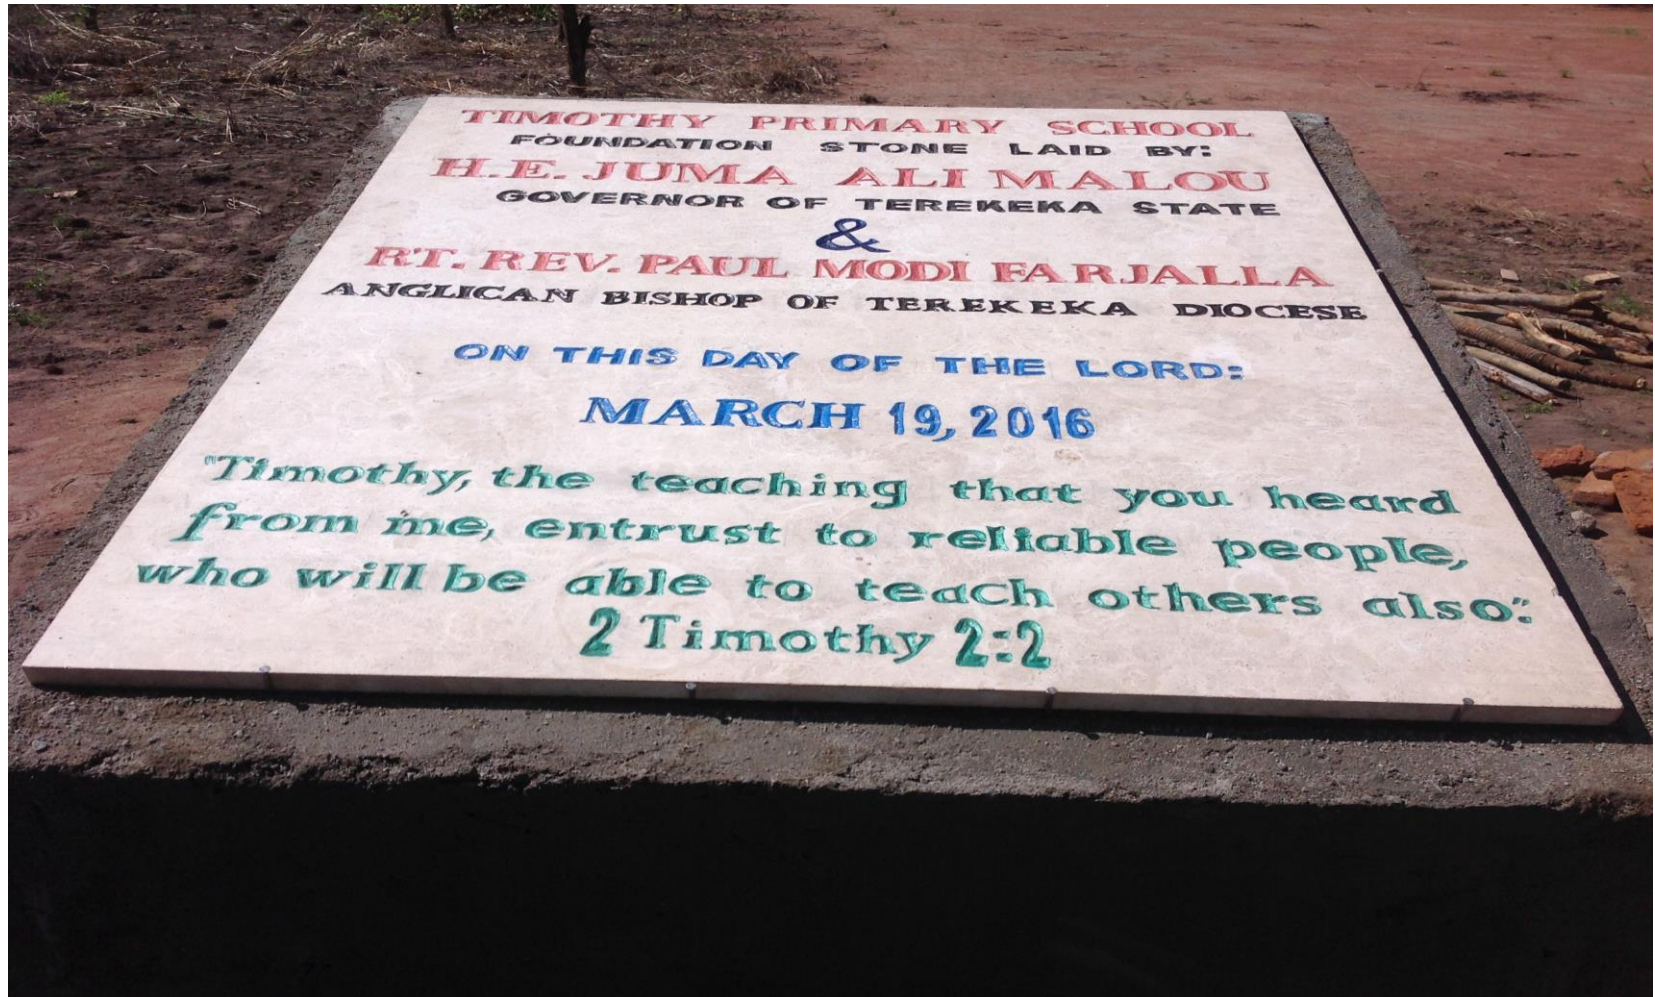 TIMOTHY PRIMARY SCHOOL
FOUNDATION STONE LAID BY:
H.E. JUMA ALI MALOU
GOVERNOR OF TEREKEKA STATE
&
RT. REV. PAUL MODI FARJALLA
ANGLICAN BISHOP OF TEREKEKA DIOCESE
ON THIS DAY OF THE LORD:
MARCH 19, 2016
"Timothy, the teaching that you heard
from me, entrust to reliable people,
who will be able to teach others also."
2 Timothy 2:2